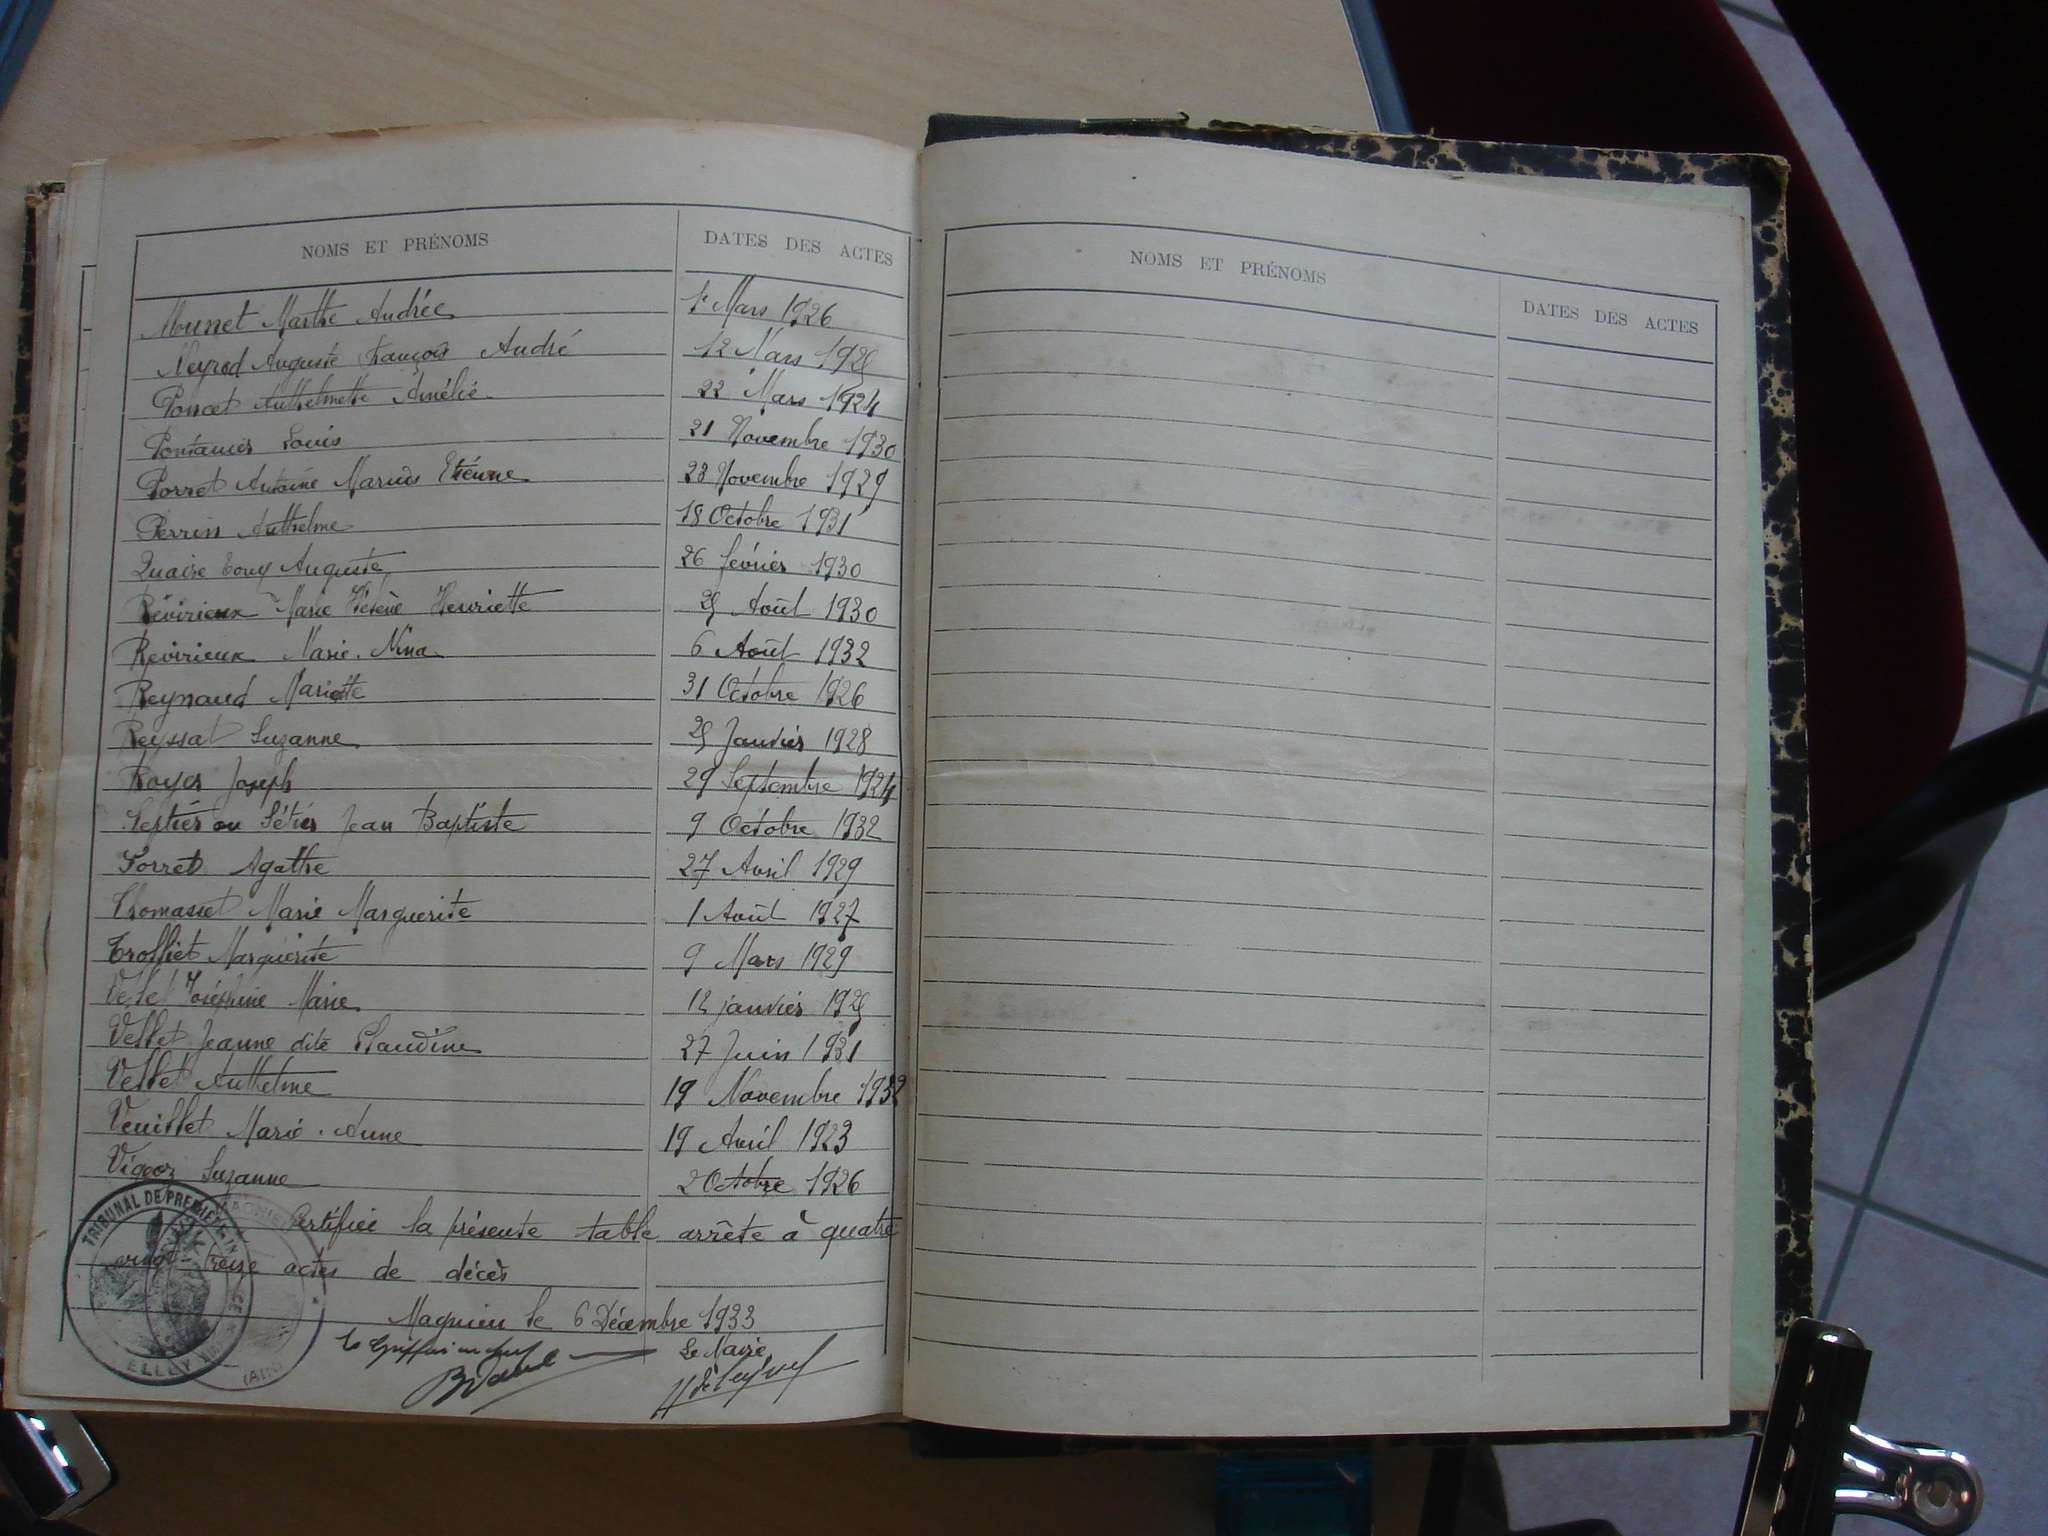 NOMS ET PRÉNOMS DATES DES ACTES
Munet Marthe Andrée 1r Mars 1926
Neyrod Auguste François André 12 Mars 1925
Poncet Anthelmette Amélie 22 Mars 1924
Pontanier Louis 21 Novembre 1930
Porret Antoine Marius Etienne 28 Novembre 1929
Perrin Anthelme 18 Octobre 1931
Quaire Tony Auguste 26 février 1930
Révirieux Marie Hélène Henriette 25 Août 1930
Revirieux Marie-Nina 6 Août 1932
Reynaud Mariette 31 Octobre 1926
Reyssat Suzanne 25 Janvier 1928
Royer Joseph 29 Septembre 1924
Sestier ou Sétier Jean Baptiste 9 Octobre 1932
Sorret Agathe 27 Avril 1929
Thomasset Marie Marguerite 1 Août 1927
Trolliet Marguerite 9 Mars 1929
Vellet Joséphine Marie 12 janvier 1925
Vellet Jeanne dite Claudine 27 Juin 1931
Vellet Anthelme 19 Novembre 1932
Veuillet Marie-Anne 19 Avril 1923
Vigoz Suzanne 2 Octobre 1926
Certifiée la présente table arrête à quatre
vingt-treise actes de décès
Magnieu le 6 Décembre 1933
Le Greffier en chef Le Maire
TRIBUNAL DE PREMIERE INSTANCE
(AIN)
NOMS ET PRÉNOMS DATES DES ACTES